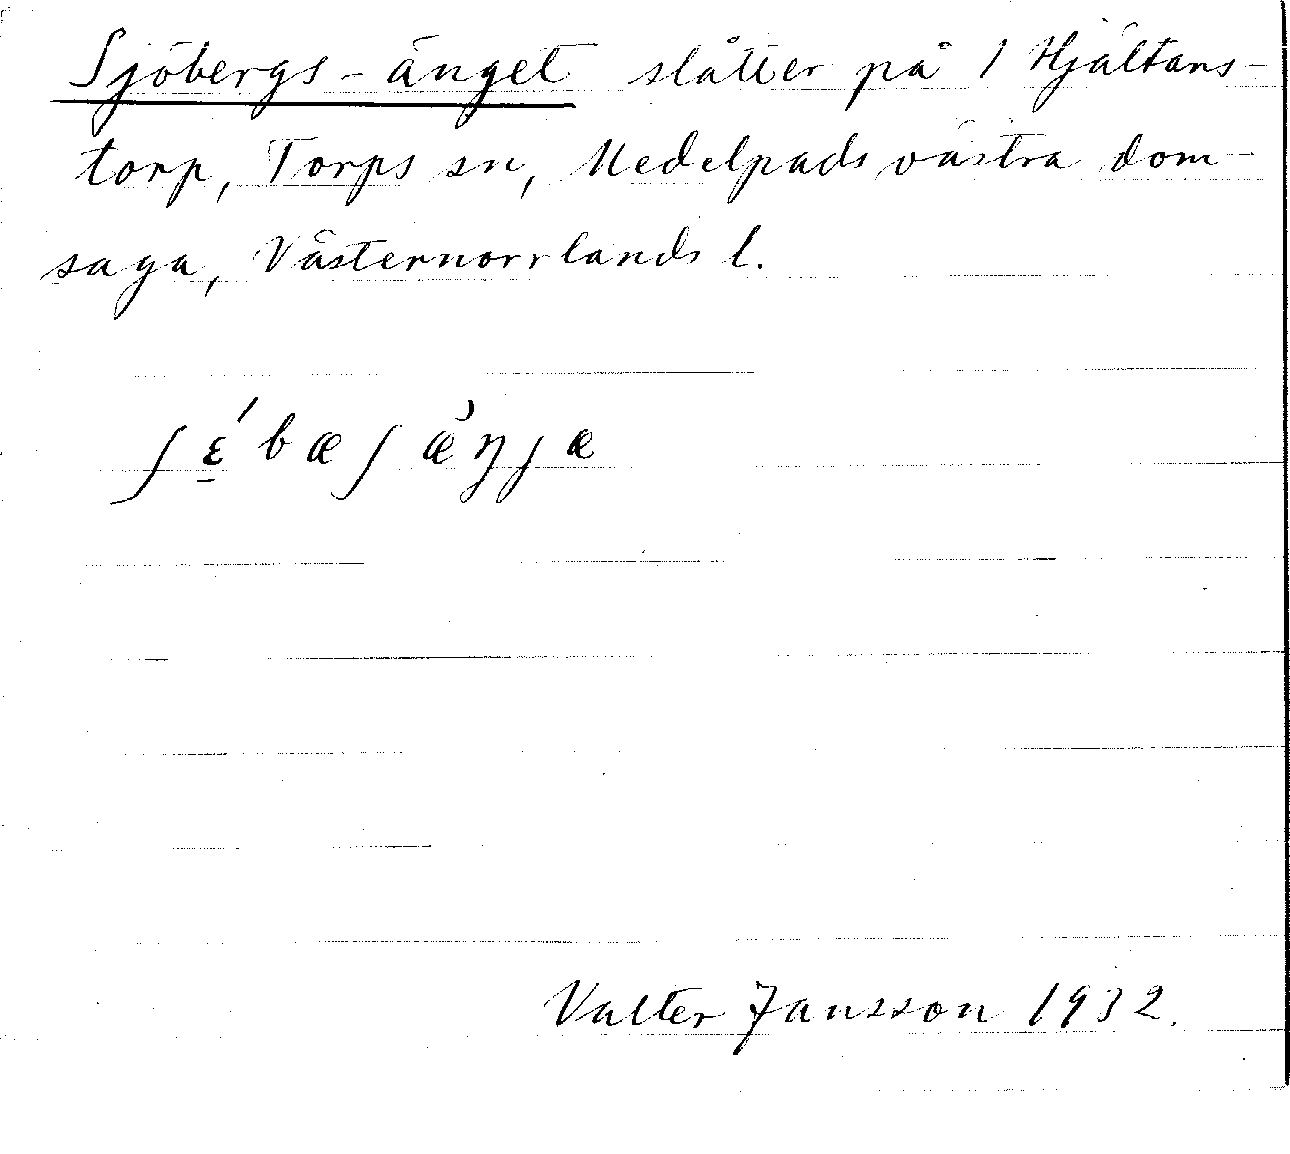 Sjöbergs-änget slåtter på 1 Hjältans-
torp, Torps sn, Medelpads västra dom-
saga, Västernorrlands l.
ʃɛ̠́bæʃæ̀ŋjæ
Valter Jansson 1932.